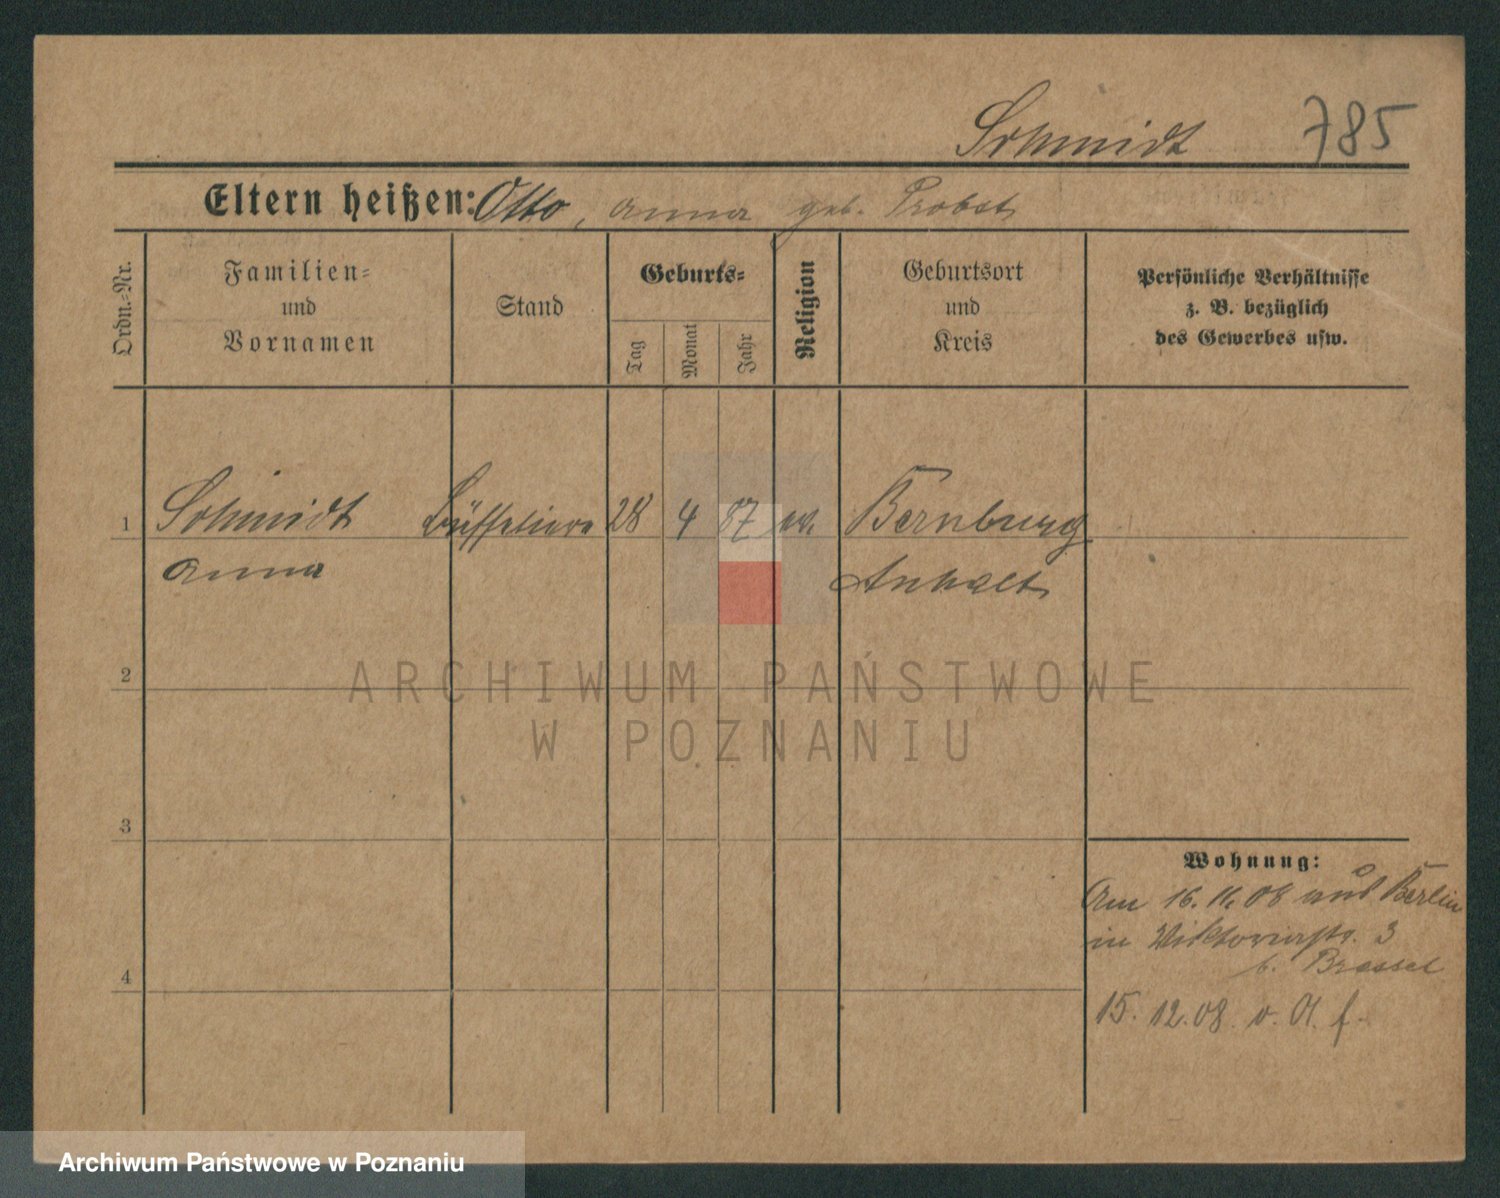 Schmidt 785
Eltern heißen: Otto, Anna geb. Probst
Ordn.=Nr.
Familien=
und
Vornamen
Stand
Geburts=
Tag
Monat
Jahr
Religion
Geburtsort
und
Kreis
Persönliche Verhältnisse
z. B. bezüglich
des Gewerbes usw.
1 Schmidt Büffetiere 28 4 87 ev. Bernburg
Anna Anhalt
2
ARCHIWUM PAŃSTWOWE
W POZNANIU
3
Wohnung:
Am 16. 11. 08 aus Berlin
in Viktoriastr. 3
b. Brassel
4
15. 12. 08 v. A. f.
Archiwum Państwowe w Poznaniu